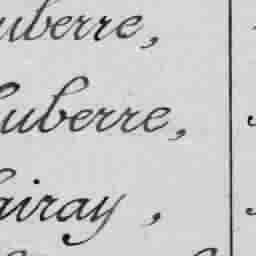 uberre,
uberre,
airay,